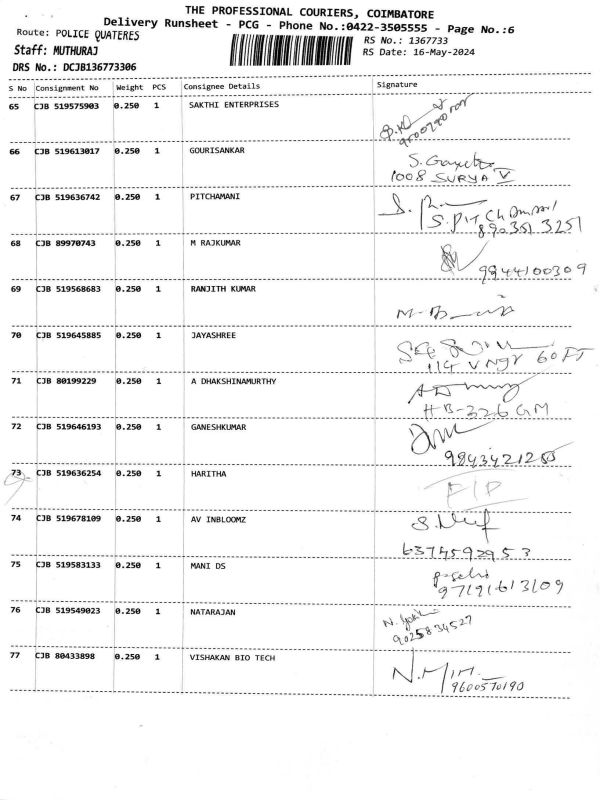 THE PROFESSIONAL COURIERS, COIMBATORE
Delivery Runsheet - PCG - Phone No.:0422-3505555 - Page No.:6
Route: POLICE QUATERES
RS No.: 1367733
Staff: MUTHURAJ
RS Date: 16-May-2024
DRS No.: DCJB136773306
S No Consignment No Weight PCS Consignee Details Signature
65 CJB 519575903 0.250 1 SAKTHI ENTERPRISES
66 CJB 519613017 0.250 1 GOURISANKAR
1008 SURYA V
67 CJB 519636742 0.250 1 PITCHAMANI
68 CJB 89970743 0.250 1 M RAJKUMAR
9944100309
69 CJB 519568683 0.250 1 RANJITH KUMAR
70 CJB 519645885 0.250 1 JAYASHREE
114 V Ngr 60 FT
71 CJB 80199229 0.250 1 A DHAKSHINAMURTHY
HB-326 GM
72 CJB 519646193 0.250 1 GANESHKUMAR
73 CJB 519636254 0.250 1 HARITHA
74 CJB 519678109 0.250 1 AV INBLOOMZ
6374592953
75 CJB 519583133 0.250 1 MANI DS
9791613109
76 CJB 519549023 0.250 1 NATARAJAN
9025834527
77 CJB 80433898 0.250 1 VISHAKAN BIO TECH
9600570190